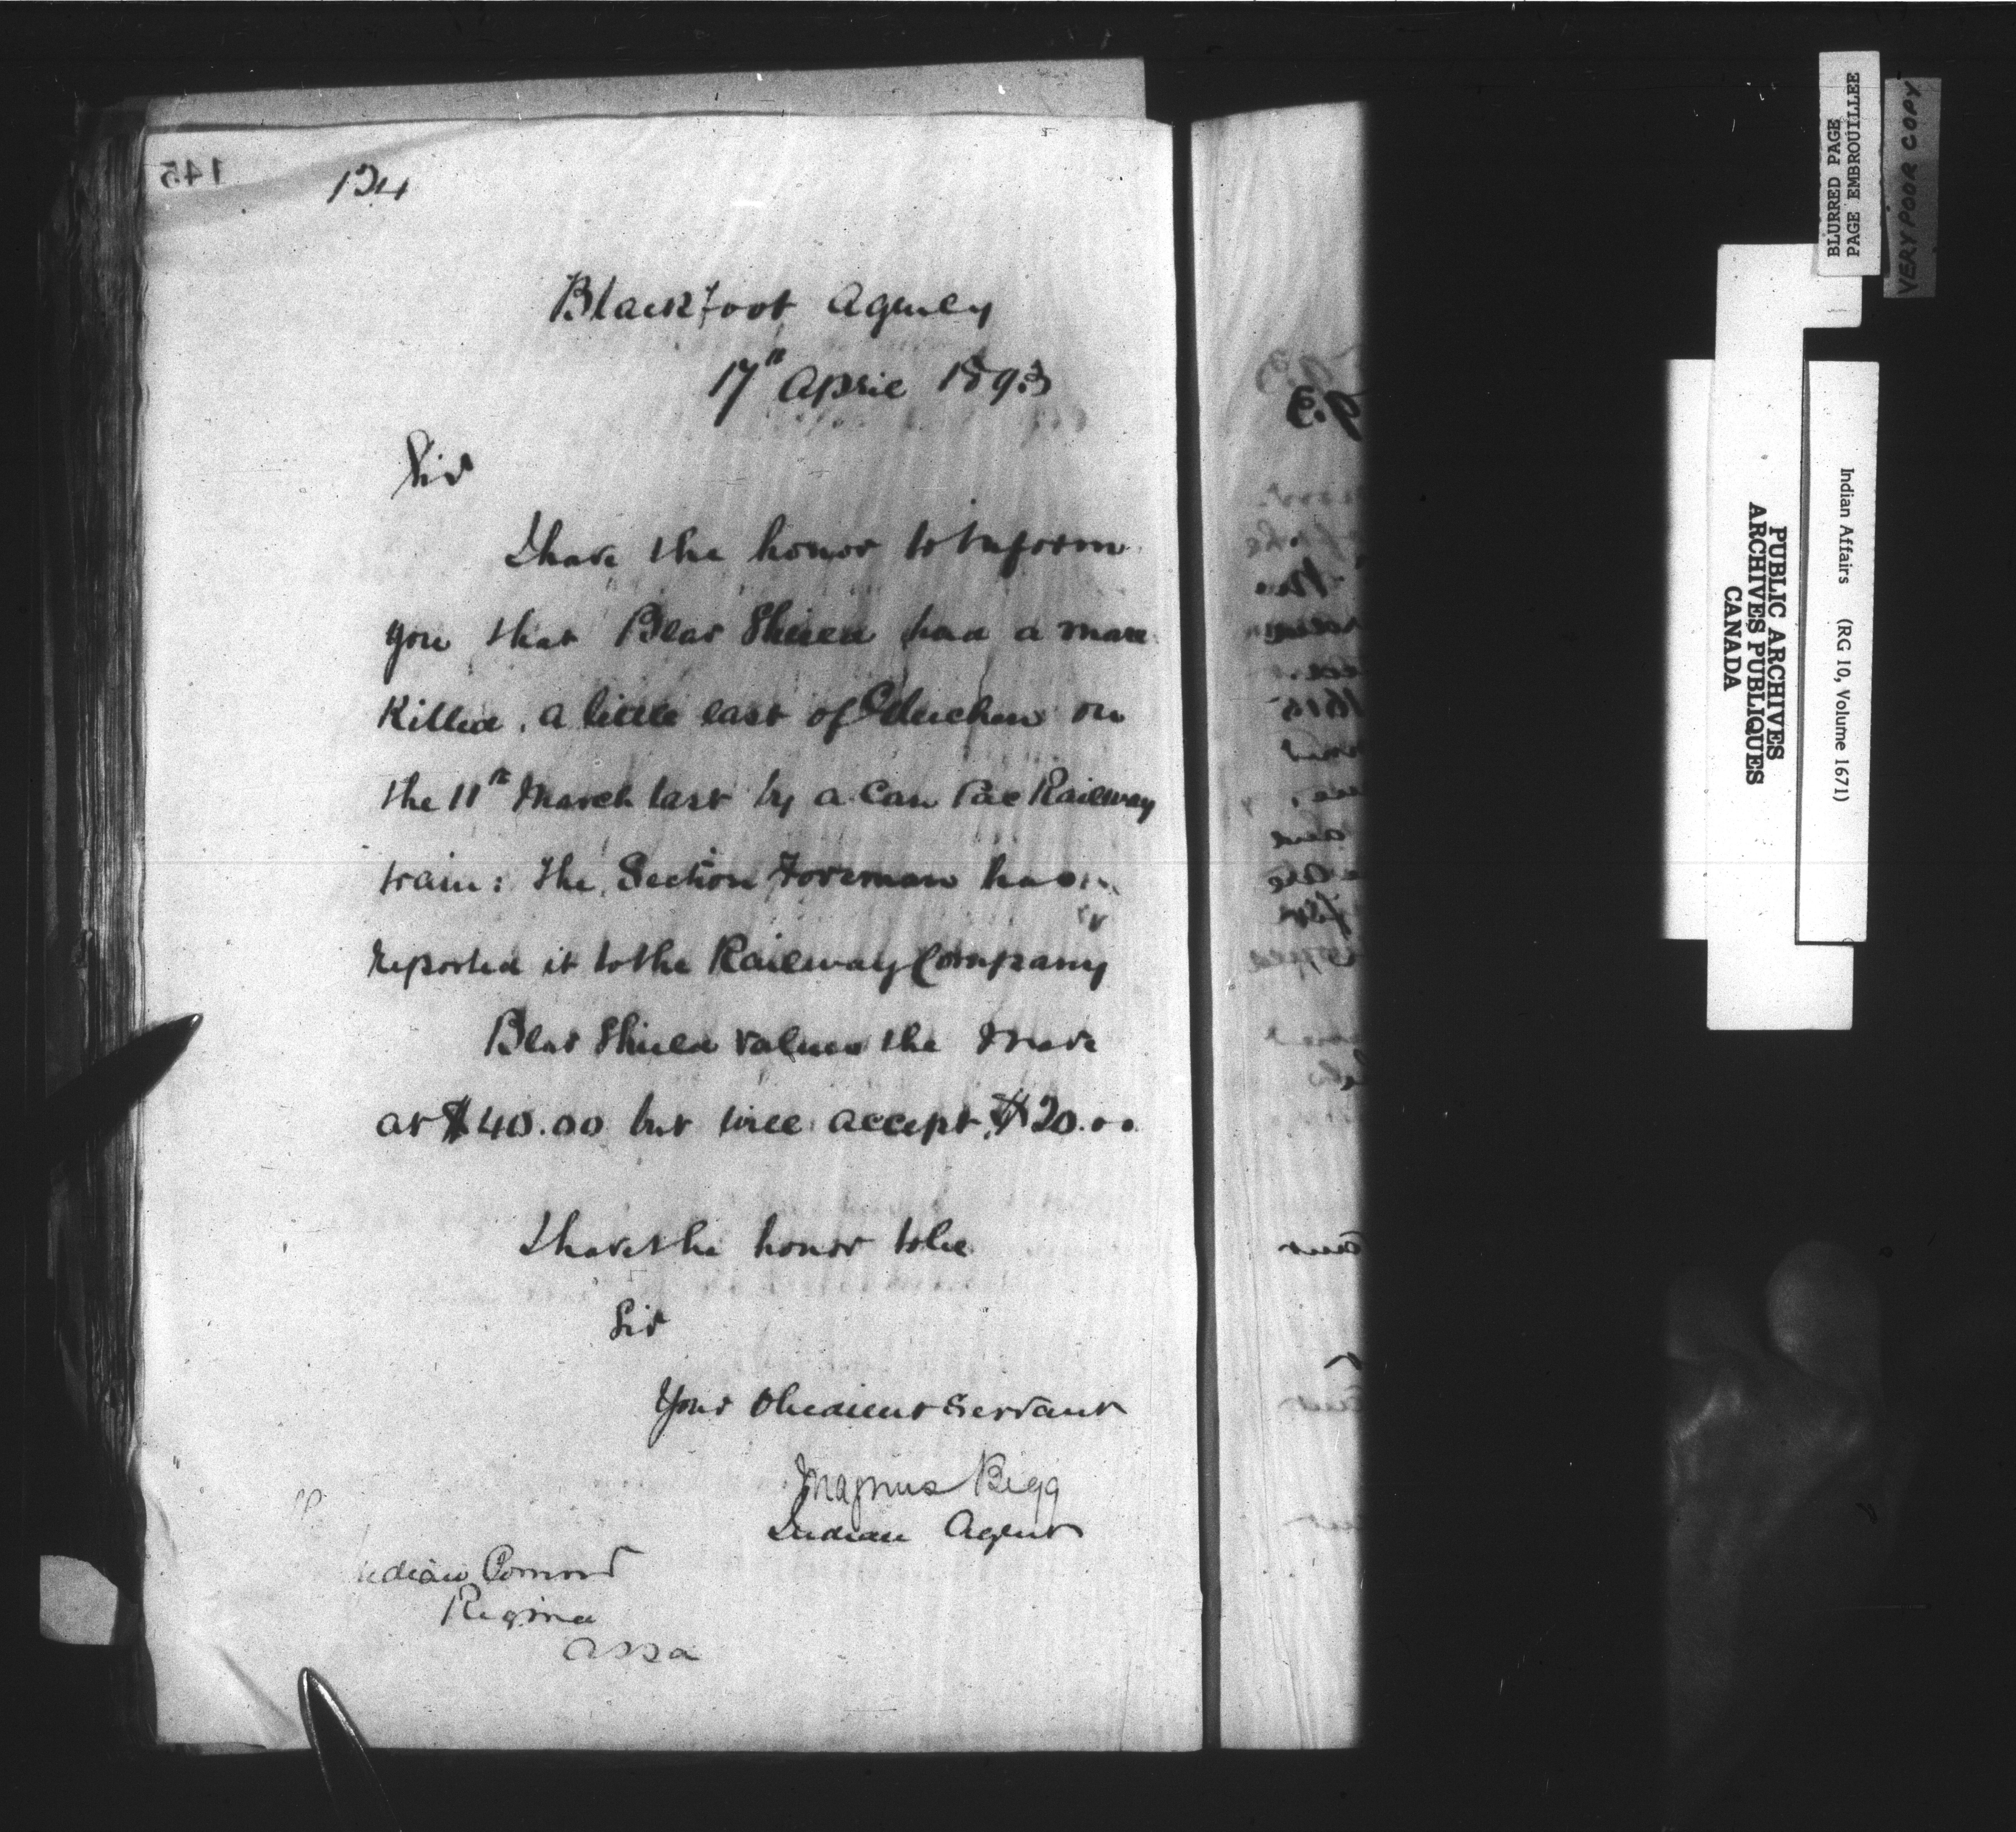 134
Blackfoot Agency
17th April 1893
Sir
I have the honor to inform
you that Bear Shield had a mare
Killed, a little east of Gleichen on
the 11th March last by a Can Pac Railway
train: the Section Foreman has
reported it to the Railway Company
Bear Shield values the mare
at $40.00 but will accept $20.00
I have the honor to be
Sir
Your Obedient Servant
Magnus Begg
Indian Agent
Indian Commr
Regina
Assa
145
BLURRED PAGE
PAGE EMBROUILLEE
VERY POOR COPY
PUBLIC ARCHIVES
ARCHIVES PUBLIQUES
CANADA
Indian Affairs (RG 10, Volume 1671)